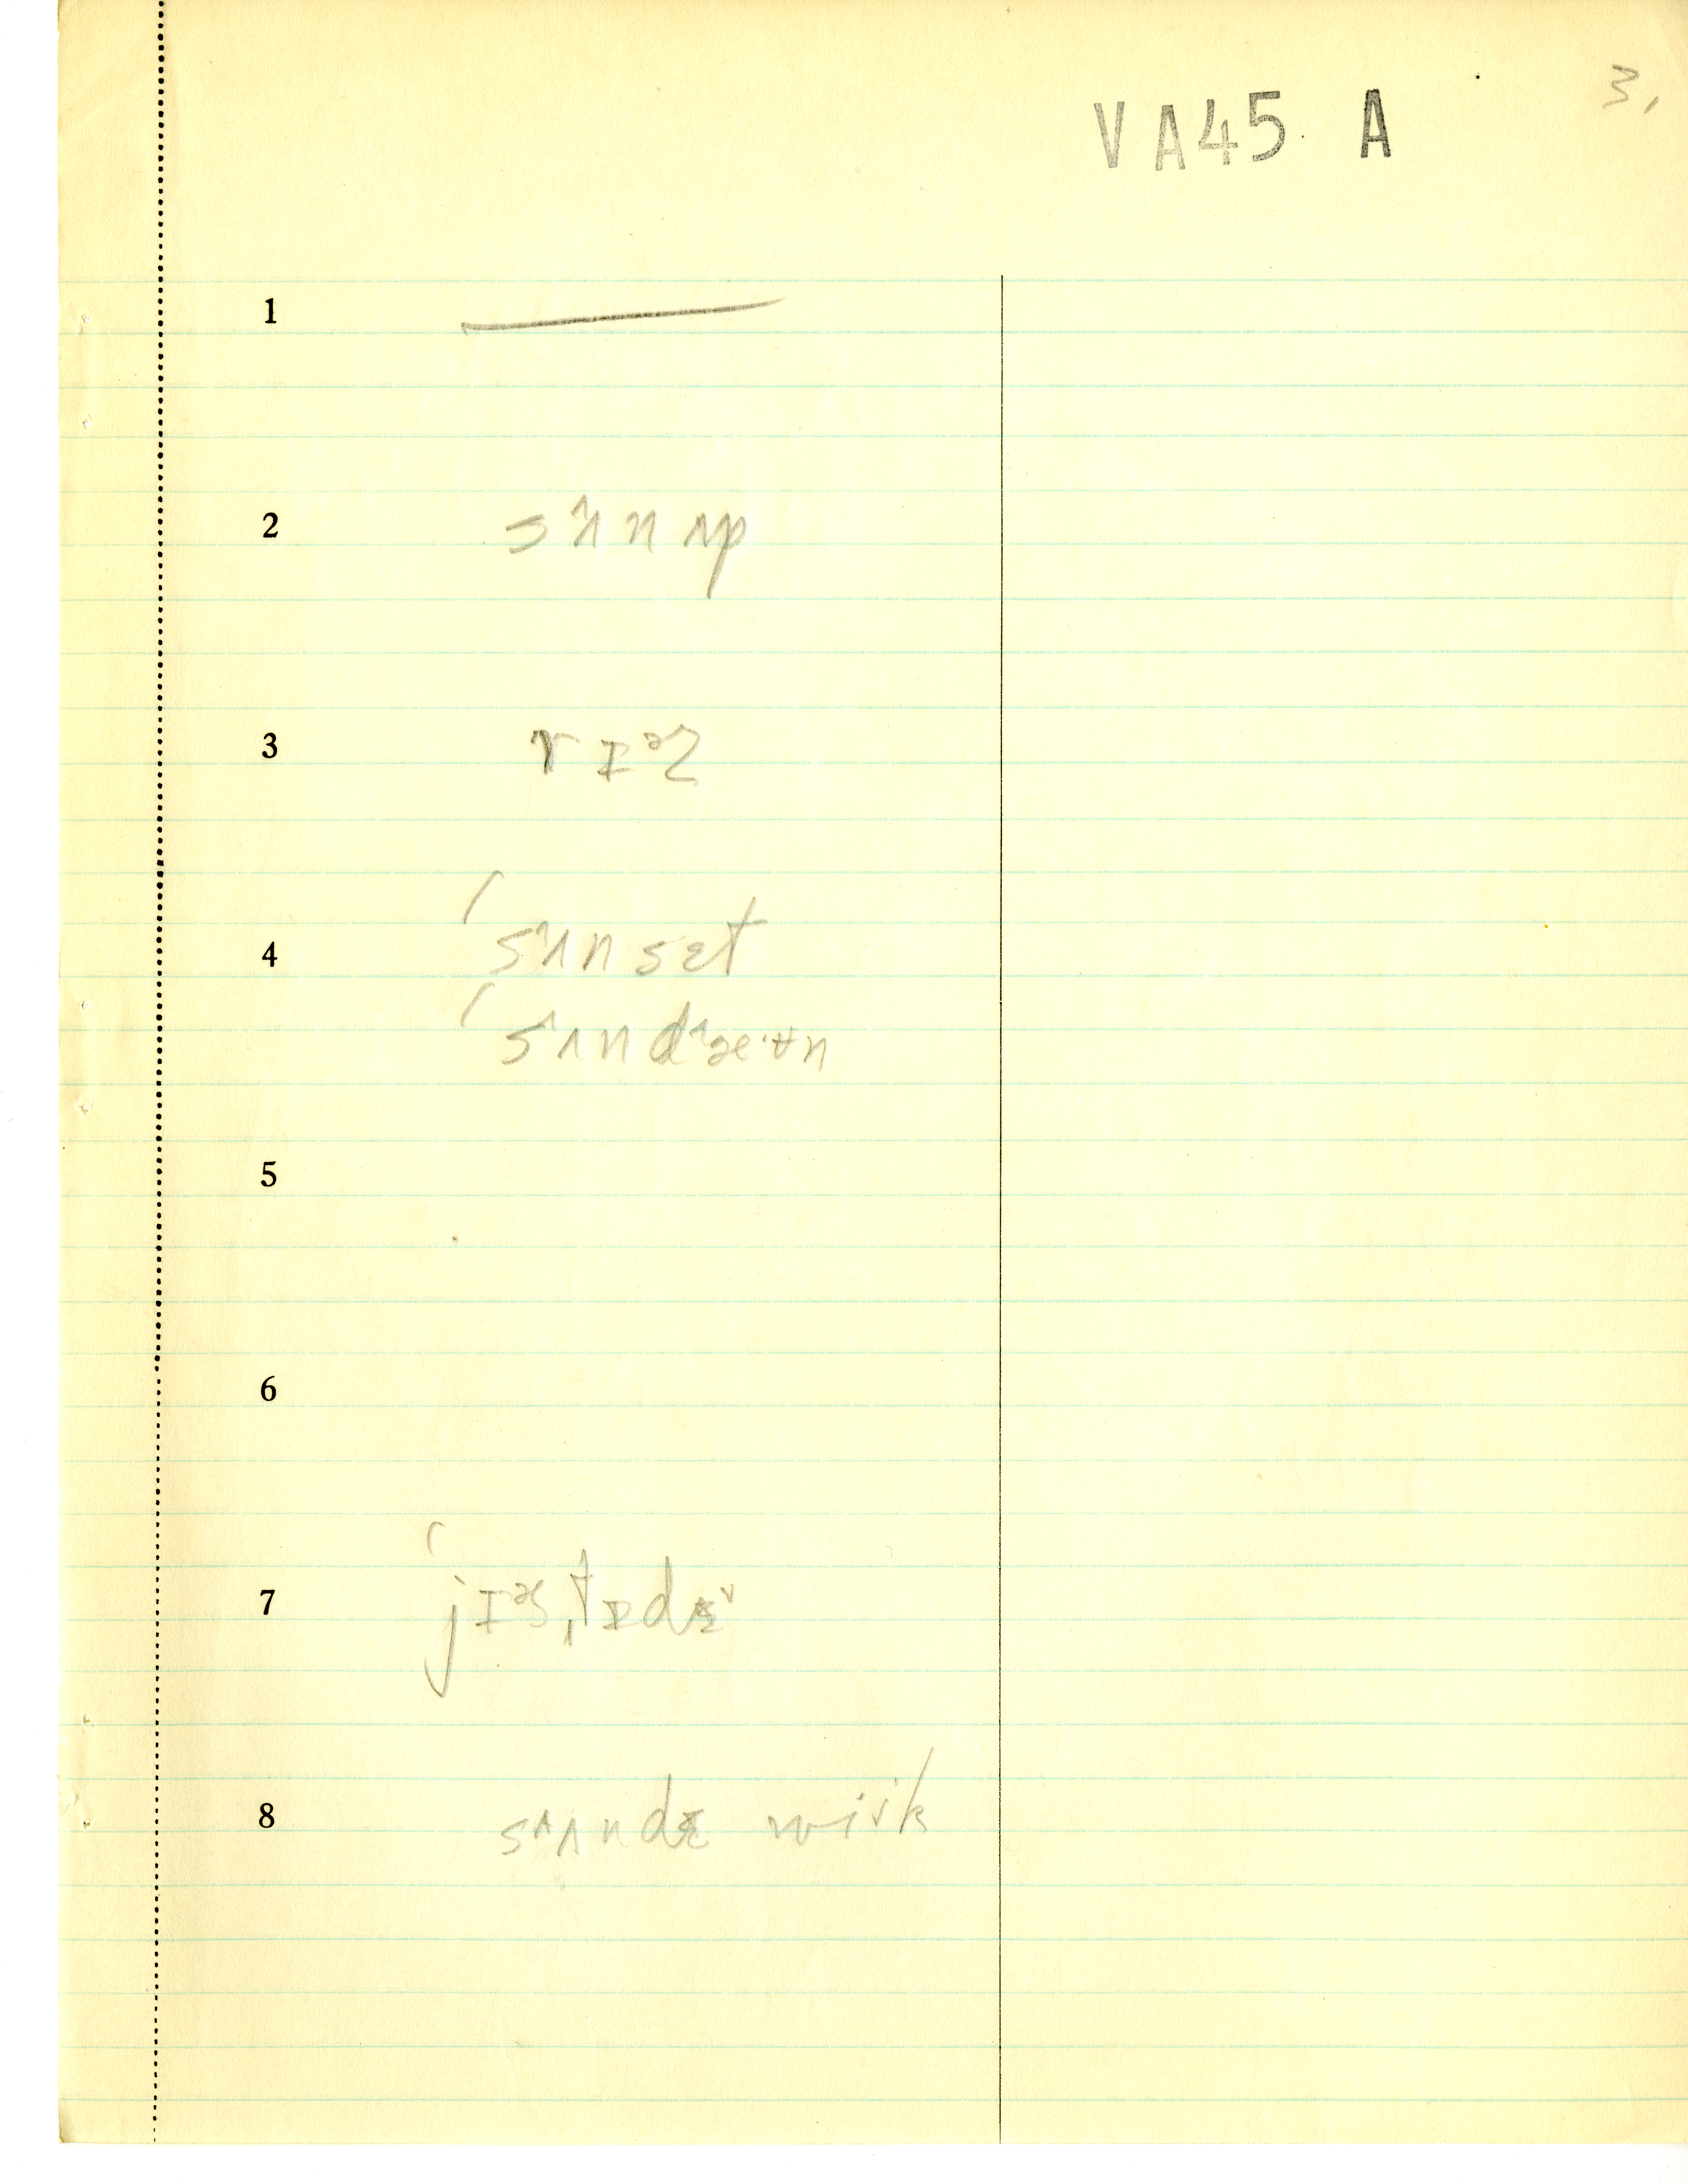 3.
VA45 A
1
2 sʌn ʌp
3 rɪᵊz
4 ʹsʌnsɛt
ʹsʌndæ·ʉn
5
6
7 ʹjɪᵊsˌtɪdɪ
8 sʌndɪ wik